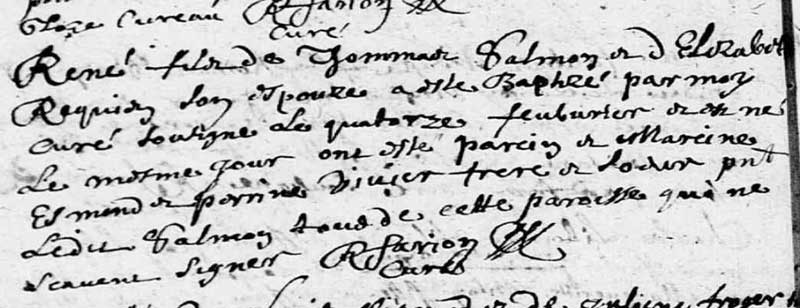 Cureau R farion
Curé
René fils de Thommas Salmon et d Elizabet
Requien son espouze a esté Baptzé par moy
Curé soubigne Le quatorze feuburier et est né
Le mesme jour ont esté parein et Mareine
Esmond et perrine Divier frere et soeur pnt
Ledit Salmon tous de cette paroisse qui ne
scavent signer R farion
Curé